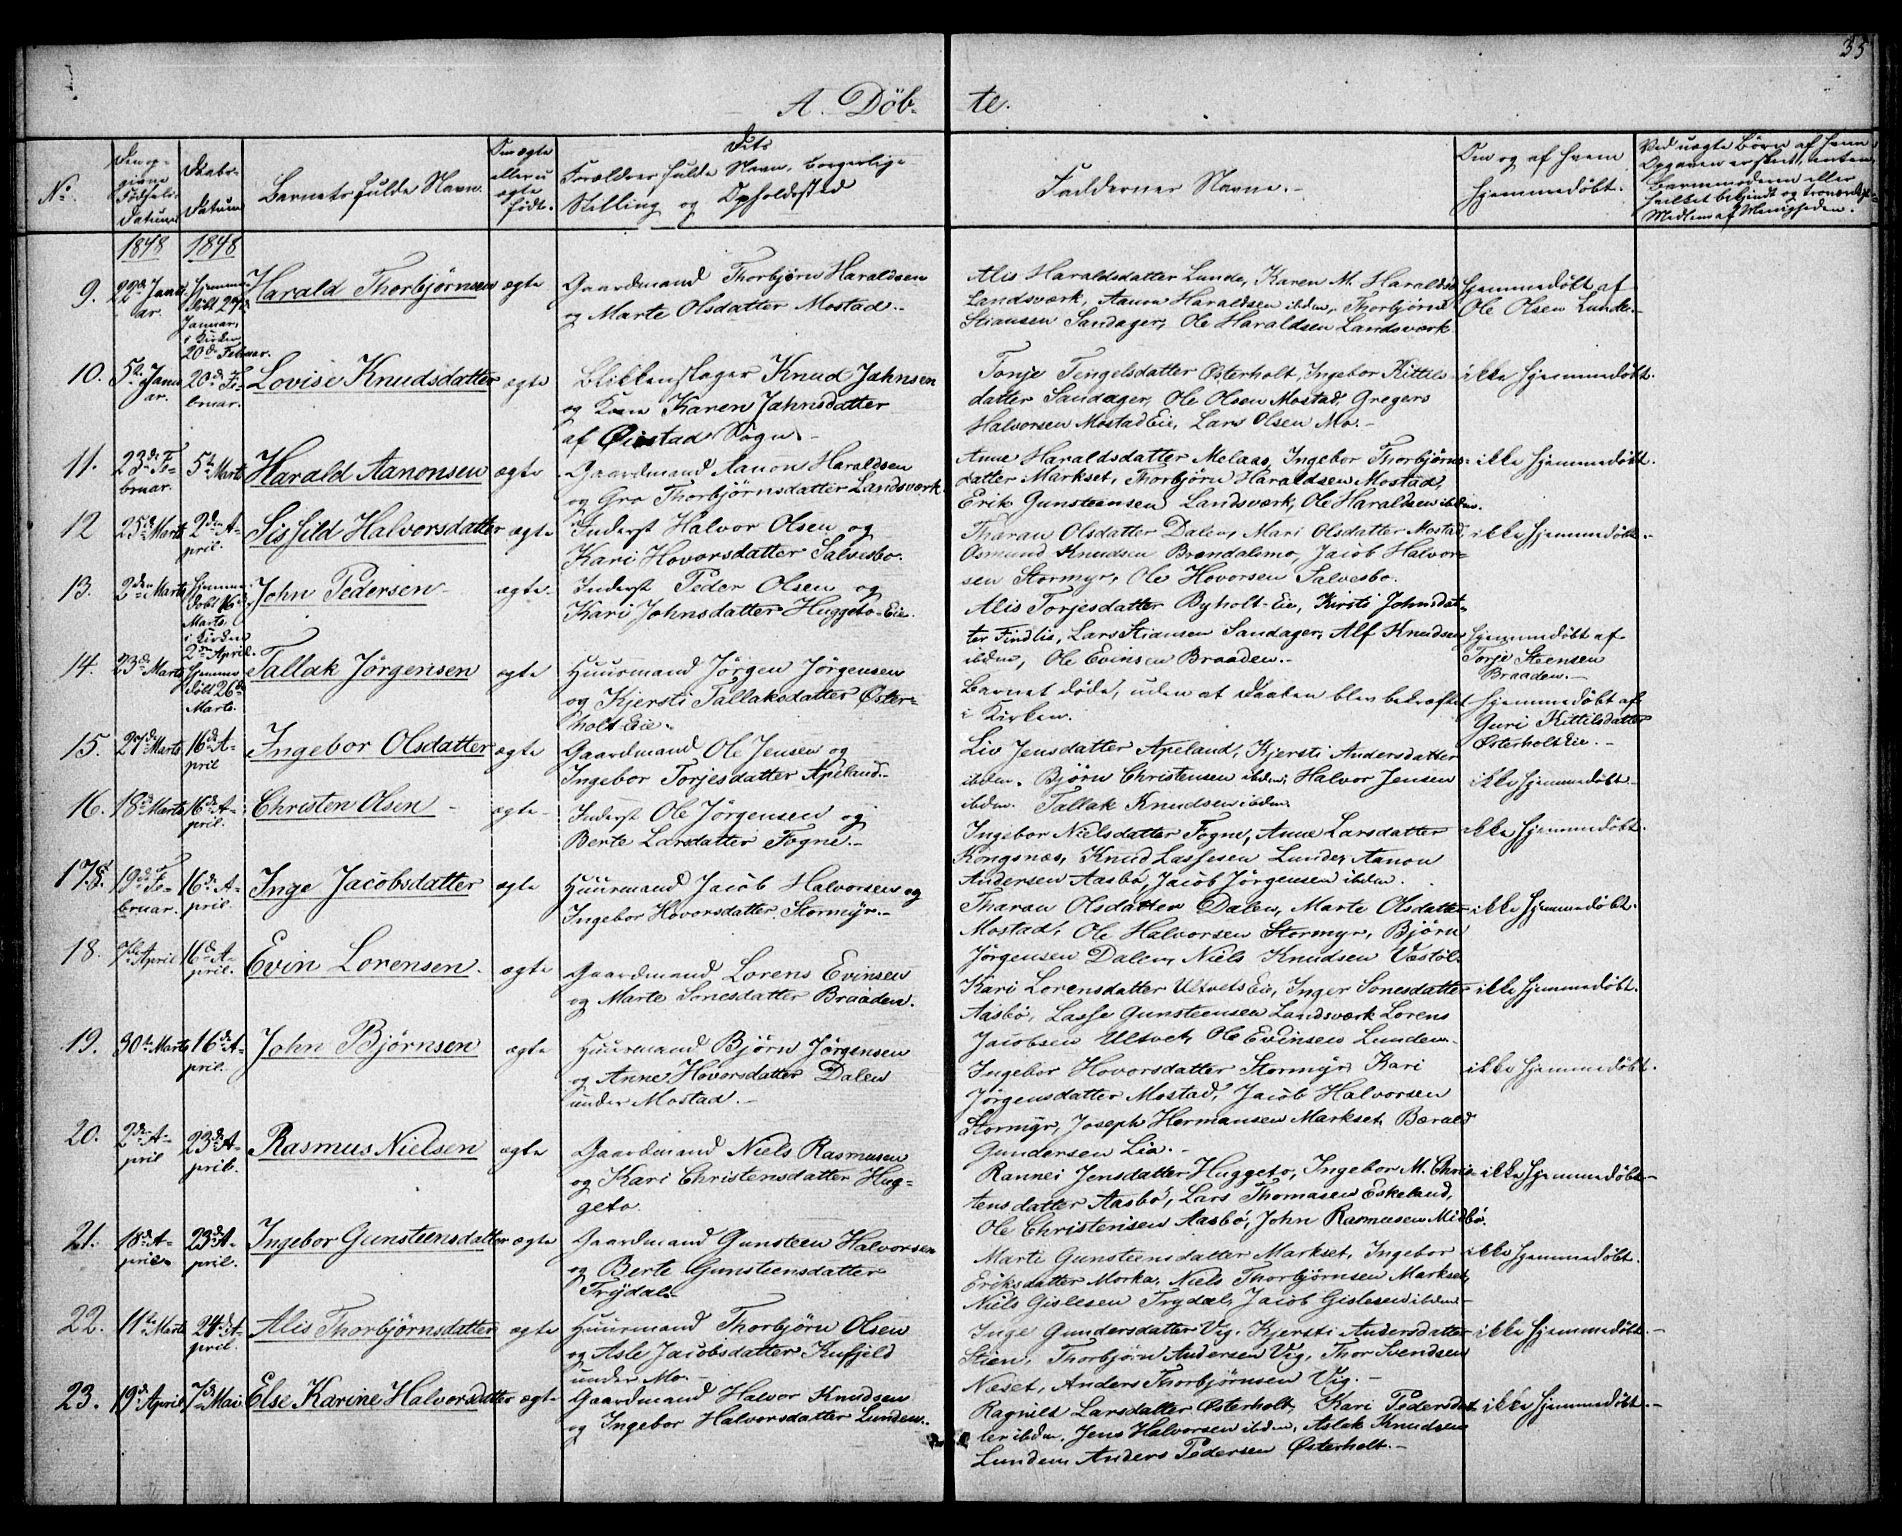 35
A. Døb-
te.
No
Den op-
givne
Fødsels-
datum
Daabs-
datum
Barnets fulde Navn.
Om ægte
eller u
ægte
født.
Forældres fulde Navn, borgerlige
Stilling og dets Opholdssted
Faddernes Navne.-
Om og af hvem
hjemmedøbt.
Ved uægte Børn af hvem
Opgaven er skeet, enten
Barnemoderen eller
Medlem af Menigheden.
1848 1848
9. 22de Janu-
ar. Hjemme-
døbt 29de
Januar,
i Kirken
20de Februar. Harald Thorbjørnsen ægte Gaardmand Thorbjørn Haraldsen
og Marte Olsdatter Mostad.-
Alis Haraldsdatter Lunde, Karen M. Haraldsd.
Landsværk, Aanon Haraldsen ibdm, Thorbjørn
Stiansen Sandager, Ole Haraldsen Landsværk
Hjemmedøbt af
Ole Olsen Lunde.-
10. 5te Janu-
ar. 20de Fe-
bruar. Lovise Knudsdatter ægte Blikkenslager Knud Jahnsen
og Kone Karen Jahnsdatter
af Øiestad Sogn.-
Tonje Tengelsdatter Østerholt, Ingebor Kittils-
datter Sandager, Ole Olsen Mostad, Gregers
Halvorsen Mostad Eie, Lars Olsen Mo.-
ikke hjemmedøbt.
11. 23de Fe-
bruar. 5te Marts Harald Aanonsen ægte Gaardmand Aanon Haraldsen
og Gro Thorbjørnsdatter Landsværk.
Anne Haraldsdatter Melaas, Ingebor Thorbjørns-
datter Markset, Thorbjørn Haraldsen Mostad,
Erik Gunsteensen Landsværk, Ole Haraldsen ibdm.
ikke hjemmedøbt.
12 25de Marts 2den A-
pril. Sisfild Halvorsdatter ægte Inderst Halvor Olsen og
Kari Hovorsdatter Salvesbo.
Tharan Olsdatter Dalen, Mari Olsdatter Mostad,
Osmund Knudsen Brendalsmo, Jacob Halvor-
sen Stormyr, Ole Hovorsen Salvesbo.
ikke hjemmedøbt.-
13. 2den Marts Hjemme-
døbt 16de
Marts,
i Kirken
2den April. John Pedersen- ægte. Inderst Peder Olsen og
Kari Johnsdatter Huggeto-Eie.
Alis Torjesdatter Byholt-Eie, Kirsti Johnsdat-
ter Findlis, Lars Stiansen Sandager, Alf Knudsen
ibdm, Ole Evinsen Braaden.-
Hjemmedøbt af
Torje Steensen
Braaden.-
14. 23de Marts Hjemme-
døbt 26de
Marts. Tallak Jørgensen ægte Huusmand Jørgen Jørgensen
og Kjersti Tallaksdatter Øster-
holt Eie.
Barnet døde, uden at Daaben blev bekræftet
i Kirken.
Hjemmedøbt af
Guri Kittilsdatter
Østerholt Eie.-
15. 27de Marts 16de A-
pril Ingebor Olsdatter ægte Gaardmand Ole Jensen og
Ingebor Torjesdatter Apeland.-
Liv Jensdatter Apeland, Kjersti Andersdatter
ibdm, Bjørn Christensen ibdm, Halvor Jensen
ibdm. Tallak Knudsen ibdm.
ikke hjemmedøbt-
16. 18de Marts 16de A-
pril. Christen Olsen- ægte- Inderst Ole Jørgensen og
Berte Larsdatter Fogne.-
Ingebor Nielsdatter Fogne, Anne Larsdatter
Kongsnæs, Knud Lassesen Lunde, Aanon
Andersen Aasbø, Jacob Jørgensen ibdm.
ikke hjemmedøbt.
17. 19de Fe-
bruar. 16de A-
pril. Inge Jacobsdatter ægte Huusmand Jacob Halvorsen og
Ingebor Hovorsdatter Stormyr.-
Tharan Olsdatter Dalen, Marte Olsdatter
Mostad, Ole Halvorsen Stormyr, Bjørn
Jørgensen Dalen, Niels Knudsen Vestøl.
ikke hjemmedøbt.
18. 7de April 16de A-
pril. Evin Lorensen. ægte Gaardmand Lorens Evinsen
og Marte Sonesdatter Braaden.
Kari Lorensdatter Ultvet Eie, Inger Sonesdatter
Aasbø, Lasse Gunsteensen Landsværk Lorens
Jacobsen Ultvet, Ole Evinsen Lunden-
ikke hjemmedøbt.
19. 30te Marts 16de A-
pril. John Bjørnsen ægte Huusmand Bjørn Jørgensen
og Anne Hovorsdatter Dalen
under Mostad.-
Ingebor Hovorsdatter Stormyr, Kari
Jørgensdatter Mostad, Jacob Halvorsen
Stormyr, Joseph Hermansen Markset, Bærald
Gundersen Lia.-
ikke hjemmedøbt.
20. 2den A-
pril 23de A-
pril. Rasmus Nielsen ægte Gaardmand Niels Rasmusen
og Kari Christensdatter Hug-
geto.
Rannei Jensdatter Huggeto, Ingebor M. Chris-
tensdatter Aasbø, Lars Thomasen Eskeland,
Ole Christensen Aasbø, John Rasmusen Midbø.
ikke hjemmedøbt-
21. 18de A-
pril. 23de A-
pril. Ingebor Gunsteensdatter ægte Gaardmand Gunsteen Halvorsen
og Berte Gunsteensdatter
Trydal.
Marte Gunsteensdatter Markset, Ingebor
Eriksdatter Morka, Niels Thorbjørnsen Markset,
Niels Gislesen Trydal, Jacob Gislesen ibdm-
ikke hjemmedøbt.
22. 11te Marts 24de A-
pril. Alis Thorbjørnsdatter ægte Huusmand Thorbjørn Olsen
og Asle Jacobsdatter Kufjeld
under Mo.-
Inge Gundersdatter Vig, Kjersti Andersdatter
Stien, Thorbjørn Andersen Vig, Thor Svendsen
Næset, Anders Thorbjørnsen Vig.-
ikke hjemmedøbt.-
23. 19de April 7de Mai Else Karine Halvorsdatter ægte Gaardmand Halvor Knudsen
og Ingebor Halvorsdatter Lunden.
Ragnilt Larsdatter Østerholt, Kari Pedersdat-
ter ibdm, Jens Halvorsen ibdm, Aslak Knudsen
Lunden, Anders Pedersen Østerholt.-
ikke hjemmedøbt.-